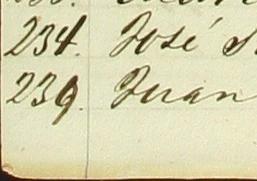 234. José
239. Juan